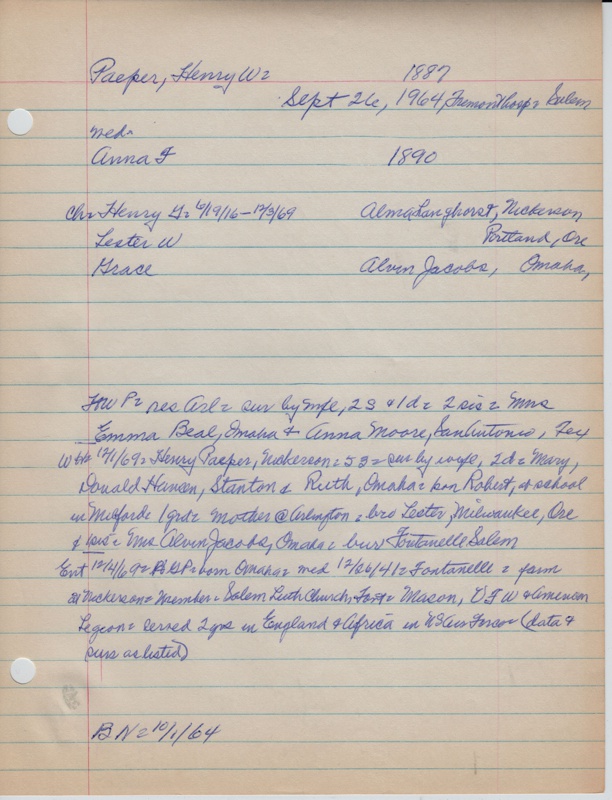 Paeper, Henry W= 1887
Sept 26, 1964, Fremont hosp= Salem
med=
Anna F 1890
Ch= Henry G= 6/19/16-12/3/69 Alma Langhorst, Nickerson
Lester W Portland, Ore
Grace Alvin Jacobs, Omaha,
HW P= res Arl= sur by wife, 2 S & 1 d= 2 sis= Mrs
Emma Beal, Omaha & Anna Moore, San Antonio, Tex
12/1/69= Henry Paeper, Nickerson= 53= sur by wife, 2 d= Mary,
Donald Hansen, Stanton & Ruth, Omaha= son Robert, at school
in Milford= 1 grd= mother @ Arlington= bro Lester, Milwaukee, Ore
& sis= Mrs Alvin Jacobs, Omaha= bur Fontanelle Salem
Ent 12/4/69= born Omaha= med 12/06/41= Fontanelle= farm
at Nickerson= member= Salem Luth Church, Font= Mason, VFW & American
Legion= served 2 yrs in England & Africa in US Air Force= (data &
surs as listed)
BN= 10/1/64